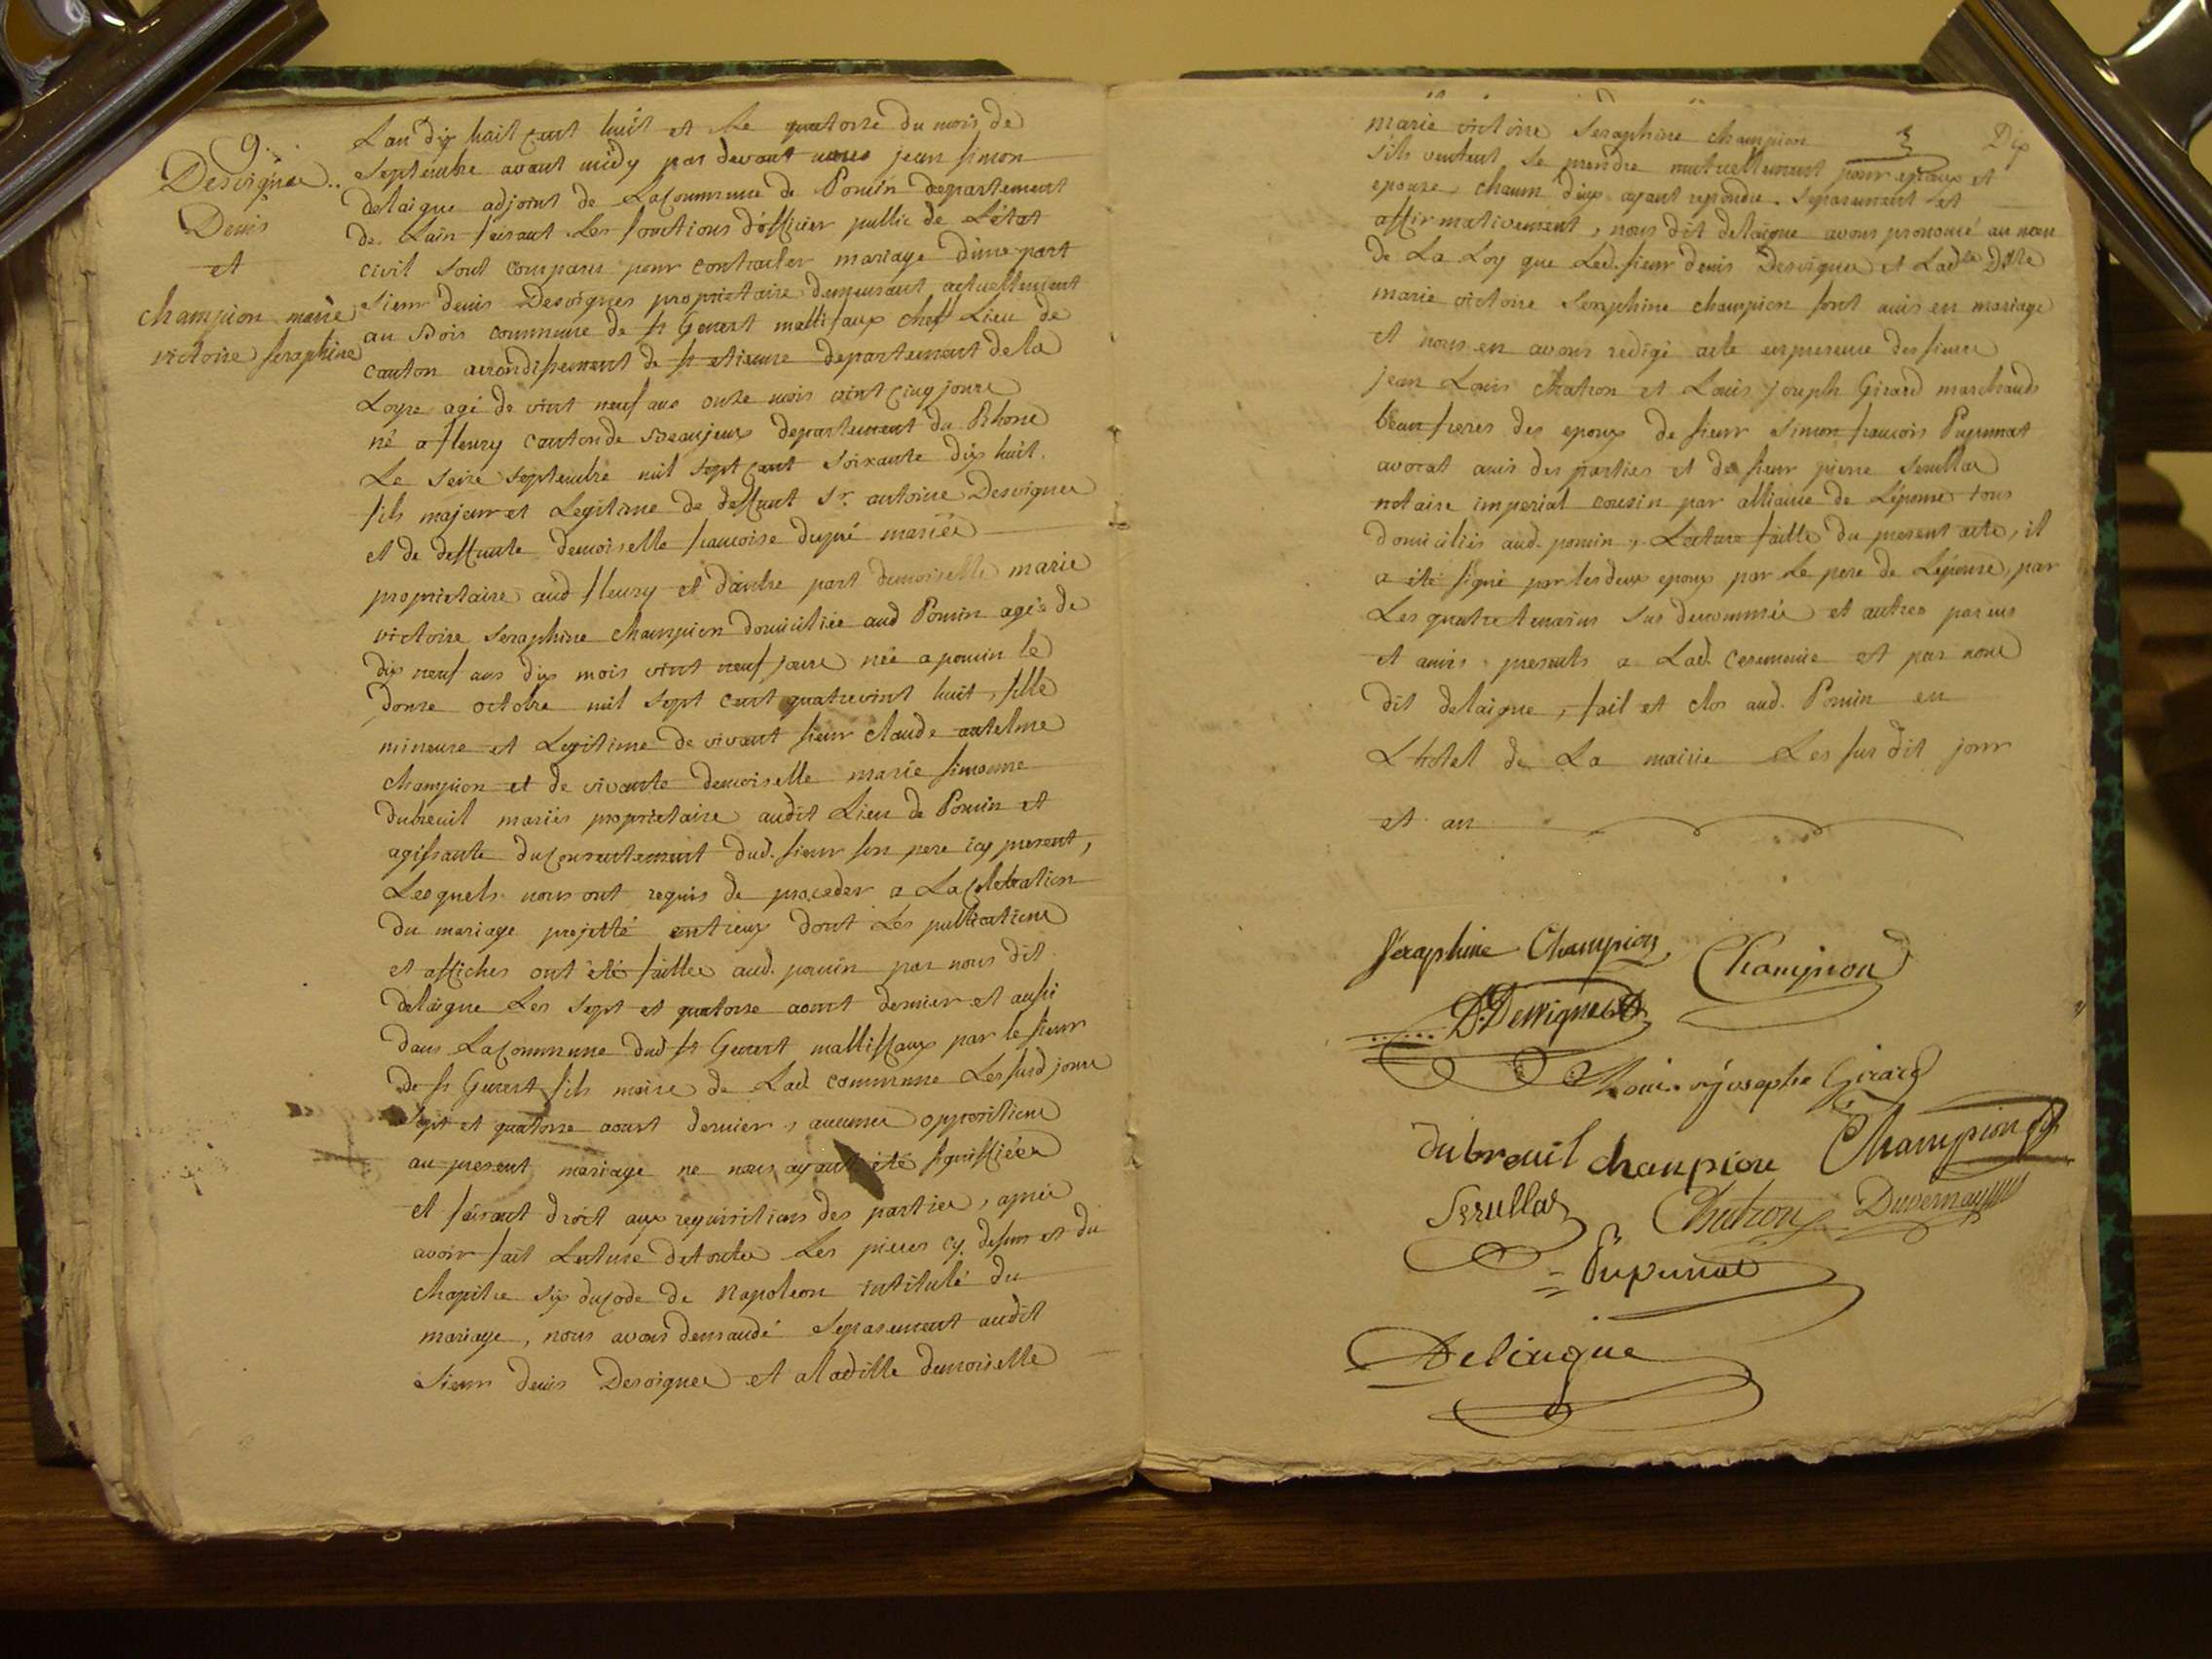 9.
Desvignes..
Denis
et
champion marie
victoire seraphine
Lan dix huit cent huit et le quatorze du mois de
septembre avant midy par devant nous jean simon
delaigue adjoint de La Commune de Poncin departement
de Lain faisant les fonctions d'officier public de L'état
civil sont comparus pour contracter mariage d'une part
sieur denis Desvignes propriétaire demeurant actuellement
au Bois commune de st Genest mallifaux chef Lieu de
canton arrondissement de st etienne departement de la
Loyre agé de vint neuf ans onze mois vint cinq jours
né a fleury canton de Beaujeux departement du Rhone
Le seize septembre mil sept cent soixante dix huit.
fils majeur et Legitime de deffunt Sr. antoine Desvignes
et de deffunte demoiselle francoise dupré mariés
propriétaire aud fleury et d'autre part demoiselle marie
victoire seraphine champion domiciliée aud Poncin agée de
dix neuf ans dix mois vint neuf jours née a poncin le
douze octobre mil sept cent quatrevint huit, fille
mineure et Legitime de vivant sieur claude antelme
champion et de vivante demoiselle marie simonne
dubreuil mariés propriétaire audit Lieu de Poncin et
agissante du Consentement dud. sieur son pere icy present,
Lesquels nous ont requis de proceder a La Celebration
du mariage projetté entreux dont Les publications
et affiches ont été faittes aud. poncin par nous dit
delaigue Les sept et quatorze aoust dernier et aussi
dans La Commune dud st Genest malliffaux par le sieur
de st Genest fils maire de Lad commune Les susd jours
sept et quatorze aoust dernier, aucunes oppositions
au present mariage ne nous ayant été signiffiées
et faisant droit aux requisitions des parties, après
avoir fait Lecture de toutes Les pieces cy dessus et du
chapitre six du Code de Napoleon intitulé du
mariage, nous avons demandé separement audit
sieur denis Desvignes et a Laditte demoiselle
Dix
marie victoire seraphine champion
s'ils veulent se prendre mutuellement pour epoux et
epouse, chacun d'eux ayant repondu separement et
affirmativement, nous dit delaigue avons prononcé au nom
de La Loy que Led. sieur denis Desvignes et Ladte Dlle
marie victoire seraphine champion sont unis en mariage
et nous en avons redigé acte en presence des sieurs
jean Louis chatron et Louis joseph Girard marchands
beaufreres des epoux de sieur simon francois Pupunat
avocat amis des parties et de sieur pierre serullas
notaire imperial cousin par alliance de L'épouse tous
domiciliés aud. poncin, Lecture faitte du present acte, il
a été signé par les deux epoux par Le pere de L'épouse, par
Les quatre temoins sus denommés et autres parens
et amis presents a Lad. ceremonie et par nous
dit delaigue, fait et clos aud. Poncin en
L'hotel de La mairie Les sus dit jour
et an
Séraphine Champion
Champion
D. Desvignes
Louis joseph Girard
dubreuil champion
Champion fils
Serullas
Chatron
Duvernay
Pupunat
Delaigue